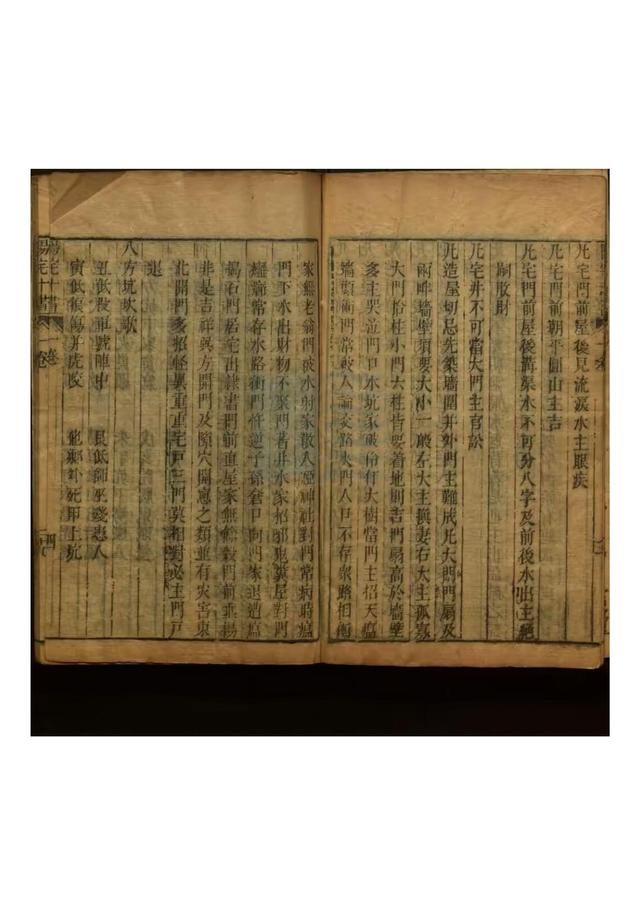 凡宅門前屋後見流淚水主眼疾
凡宅門前朝平圓山主吉
凡宅門前屋後溝渠水不可分八字及前後水出主絕
嗣敗財
凡宅井不可當大門主官訟
凡造屋切忌先築墻圍并外門主難成凡大門門扇及
兩畔墻壁須要大小一般左大主換妻右大主孤寡
大門十柱小門六柱皆要着地則吉門扇高於墻壁
多主哭泣門口水坑家破伶仃大樹當門主招天瘟
墻頭衝門常被人論交路夾門人口不存眾路相衝
家無老翁門被水射家散人啞神社對門常病時瘟
門下水出財物不聚門著井水家招邪鬼糞屋對門
癰癤常存水路衝門忤逆子孫倉口向門家退遭瘟
搗石門居宅出隸書門前直屋家無餘穀門前垂楊
非是吉祥巽方開門及隙穴開窻之類並有灾害東
北開門多招怪異重重宅戶三門莫相對必主門戶
退
八方坑坎歌
丑低殺軍號陣中 艮低師巫殘患人
寅低猴傷并虎咬
陽宅十書
一卷
四